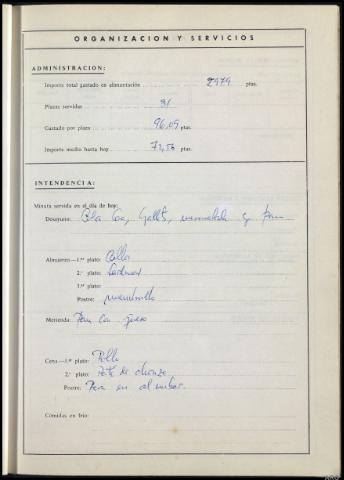 ORGANIZACION Y SERVICIOS
ADMINISTRACION:
Importe total gastado en alimentación 2979 ptas.
Plazas servidas 31
Gastado por plaza 96,09 ptas.
Importe medio hasta hoy 73,56 ptas.
INTENDENCIA:
Minuta servida en el día de hoy:
Desayuno: Cola Cao, Gallets, mermelada y Pan
Almuerzo.—1.er plato:
2.º plato:
3.er plato:
Postre: membrillo
Merienda: Pan con queso
Cena.—1.er plato: Pollo
2.º plato: de chorizo
Postre: Pera en almibar.
Comidas en frío: